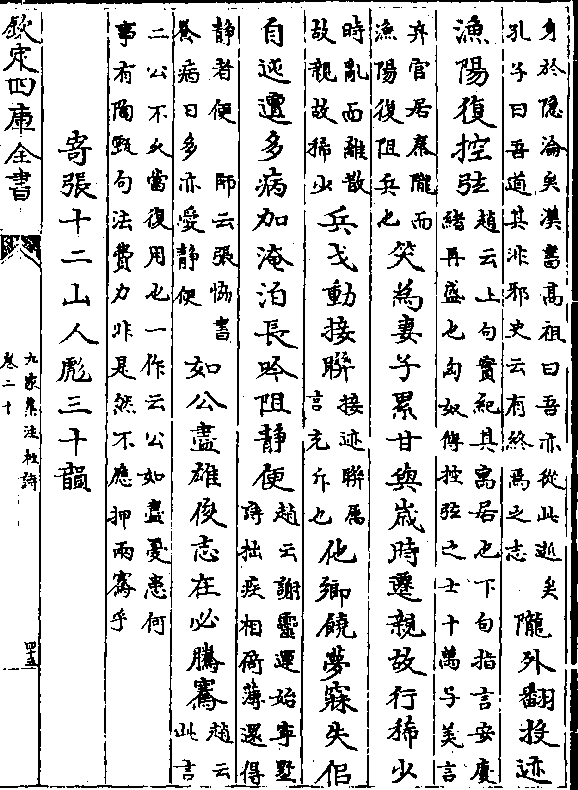 身於隱淪矣漢書高祖曰吾亦從此逝矣
孔子曰吾道其非邪史云有終焉之志
隴外翻投迹
漁陽復控弦
趙云上句實紀其寓居也下句指言安慶
緒再盛也匈奴傳控弦之士十萬子美言
棄官居秦隴而
漁陽復阻兵也
笑為妻子累甘與歲時遷親故行稀少
時亂而離散
故親故稀少
兵戈動接聯
接迹聯屬
言充斥也
他鄉饒夢寐失侶
自迍邅多病加淹泊長吟阻靜便
趙云謝靈運始寧墅
詩拙疾相倚薄還得
靜者便 師云張協書
養病日多亦愛靜便
如公盡雄俊志在必騰騫
趙云
此言
二公不久當復用也一作云公如盡憂患何
事有陶甄句法費力非是然不應押兩騫乎
寄張十二山人彪三十韻
欽定四庫全書
九家集注杜詩
卷二十
四五